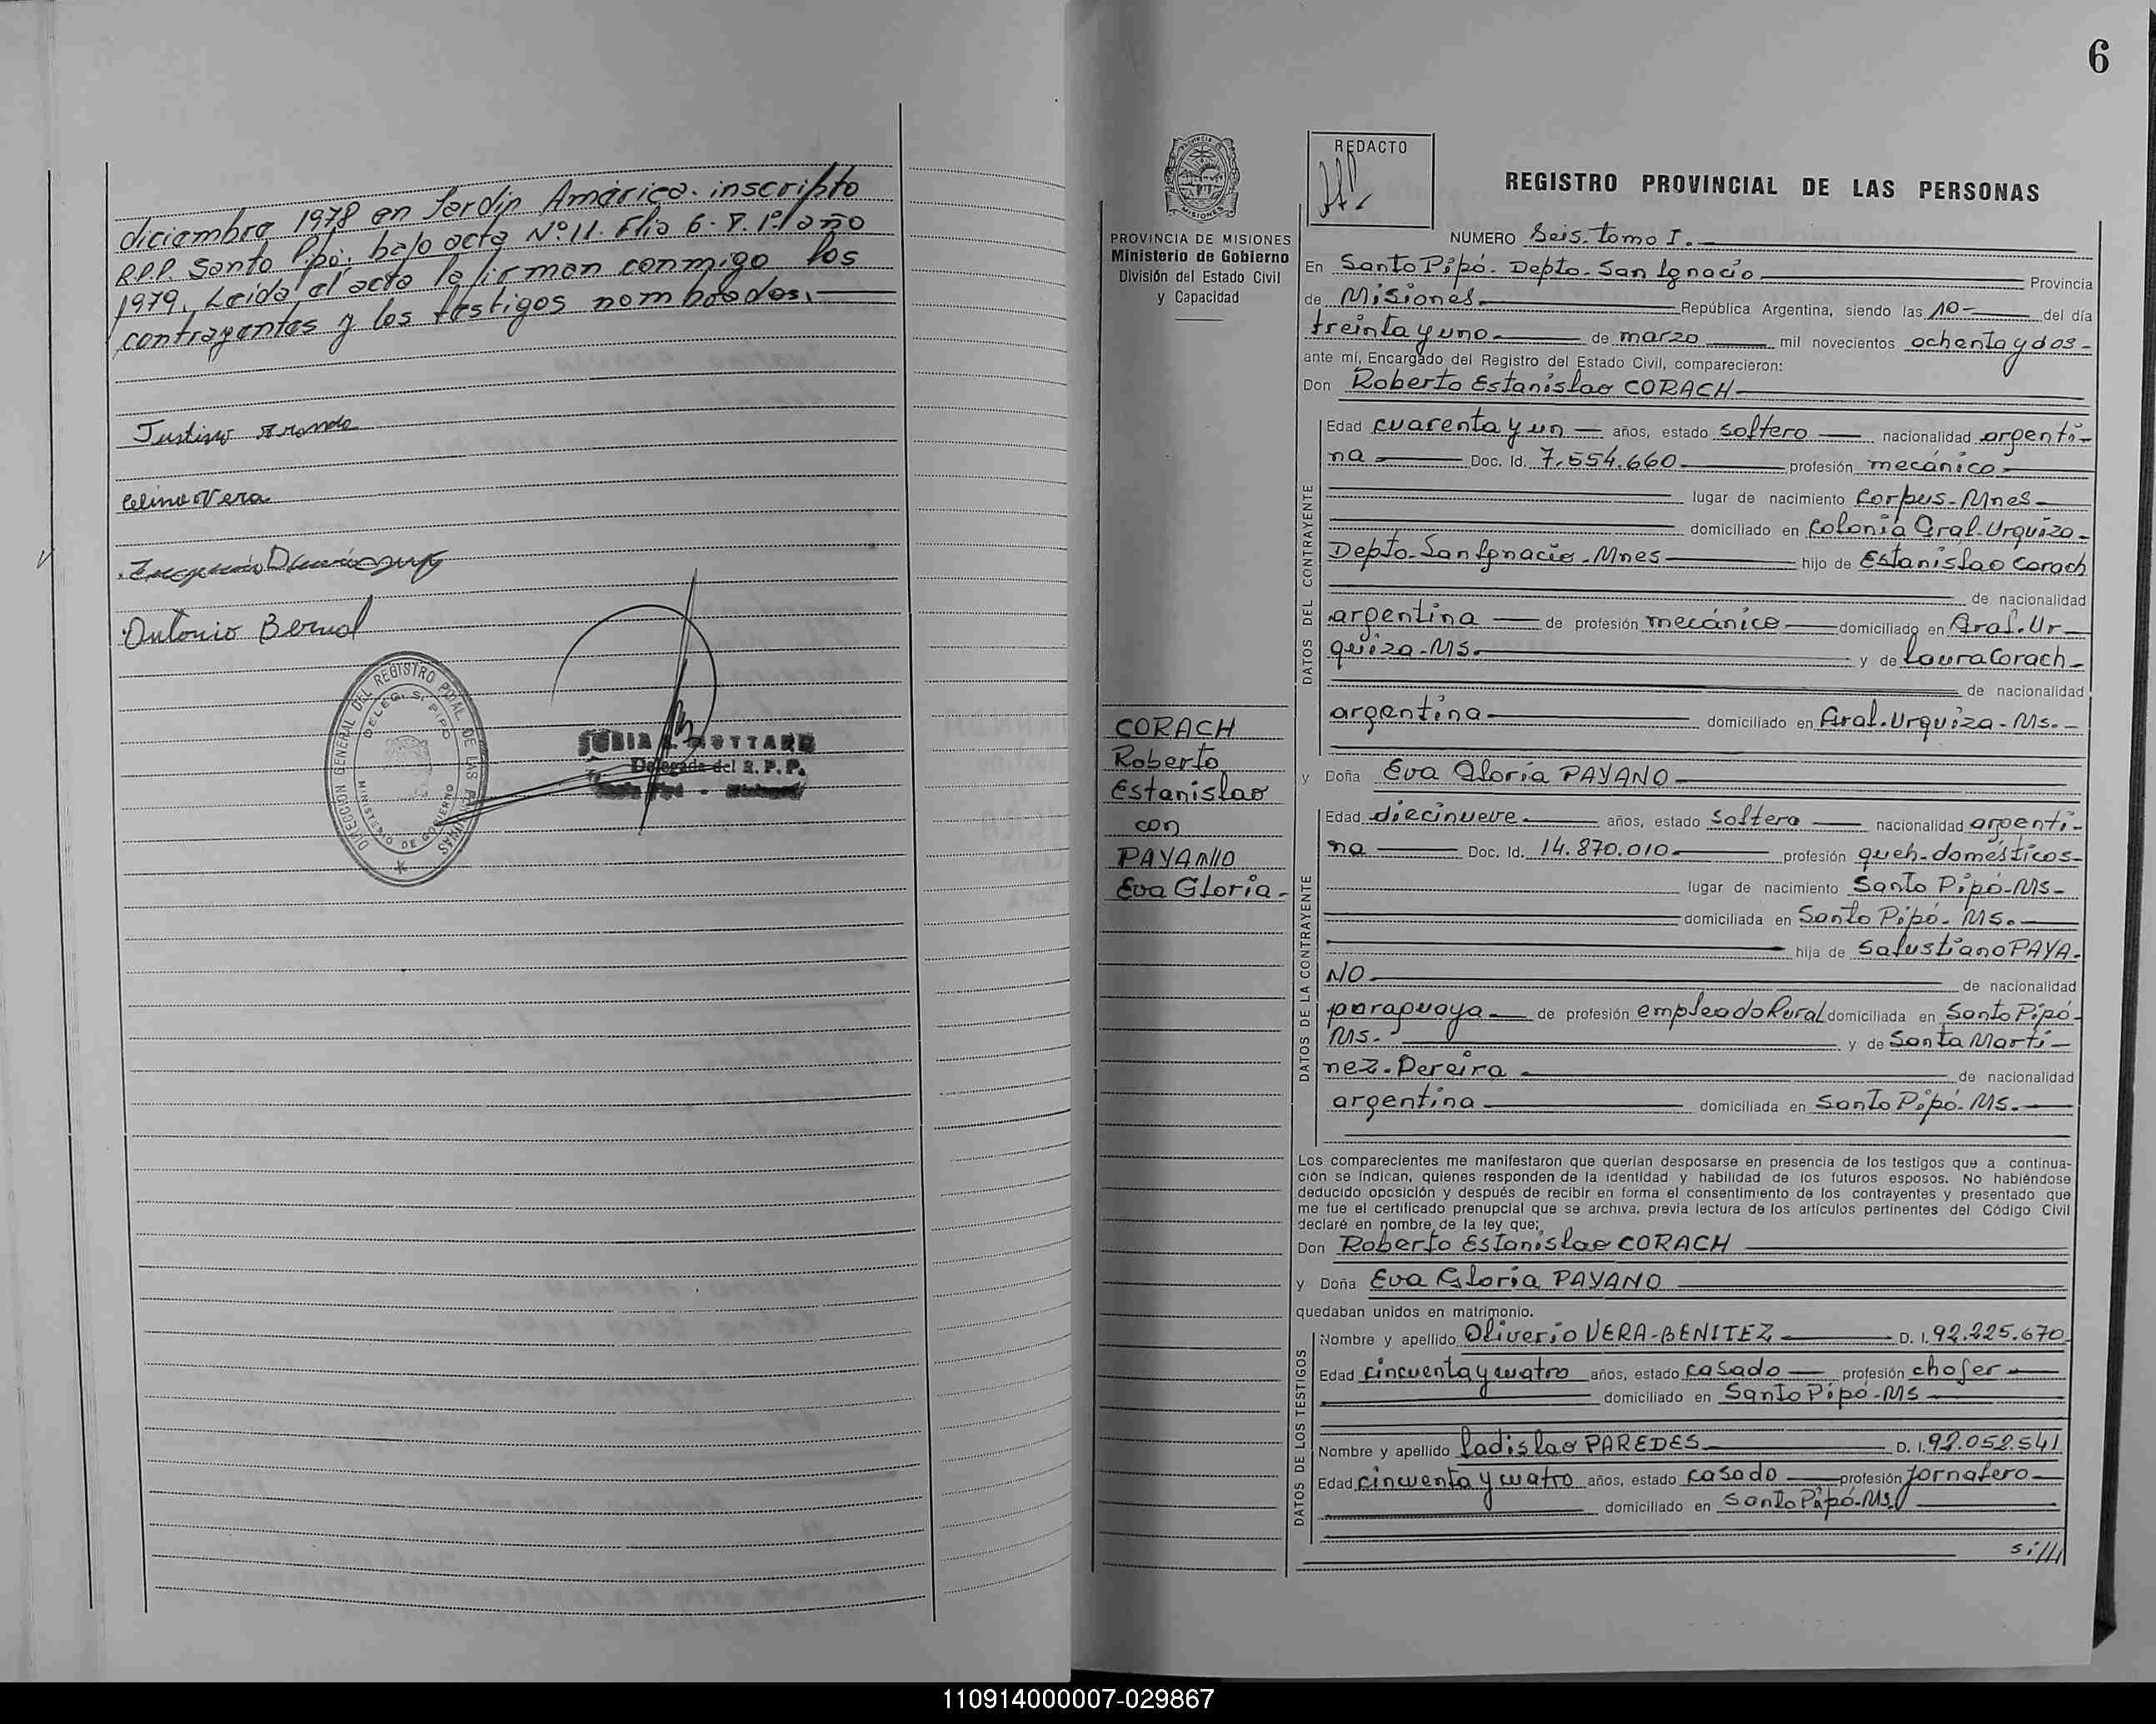 diciembre 1978 en Jardín América. inscripto
R.P.P. Santo Pipó. bajo acta Nº 11. Flio 6. T. 1º/año
1979. Leida el acta la firman conmigo los
contrayentes y los testigos nombrados.
Justino Aranda
Celina Vera
Antonio Bernal
DIRECCION GENERAL DEL REGISTRO PCIAL. DE LAS PERSONAS
DELEG. S. PIPO
MINISTERIO DE GOBIERNO
Delegada del R. P. P.
6
PROVINCIA DE MISIONES
Ministerio de Gobierno
División del Estado Civil
y Capacidad
REDACTO
REGISTRO PROVINCIAL DE LAS PERSONAS
NUMERO Seis. Tomo I.
En Santo Pipó. Depto. San Ignacio Provincia
de Misiones República Argentina, siendo las 10 del día
treinta y uno de marzo mil novecientos ochenta y dos
ante mí, Encargado del Registro del Estado Civil, comparecieron:
Don Roberto Estanislao CORACH
DATOS DEL CONTRAYENTE
Edad cuarenta y un años, estado soltero nacionalidad argenti-
na Doc. Id. 7.554.660 profesión mecánico
lugar de nacimiento Corpus-Mnes
domiciliado en Colonia Gral. Urquiza
Depto. San Ignacio. Mnes hijo de Estanislao Corach
de nacionalidad
argentina de profesión mecánico domiciliado en Gral. Ur-
quiza-Ms. y de Laura Corach
de nacionalidad
argentina domiciliado en Gral. Urquiza-Ms.
CORACH
Roberto
Estanislao
con
PAYANO
Eva Gloria
y Doña Eva Gloria PAYANO
DATOS DE LA CONTRAYENTE
Edad diecinueve años, estado soltera nacionalidad argenti-
na Doc. Id. 14.870.010 profesión queh. domésticos
lugar de nacimiento Santo Pipó-Ms
domiciliada en Santo Pipó-Ms.
hija de Salustiano PAYA-
NO de nacionalidad
paraguaya de profesión empleado Rural domiciliada en Santo Pipó
Ms. y de Santa Marti-
nez-Pereira de nacionalidad
argentina domiciliada en Santo Pipó-Ms.
Los comparecientes me manifestaron que querían desposarse en presencia de los testigos que a continua-
ción se indican, quienes responden de la identidad y habilidad de los futuros esposos. No habiéndose
deducido oposición y después de recibir en forma el consentimiento de los contrayentes y presentado que
me fue el certificado prenupcial que se archiva, previa lectura de los artículos pertinentes del Código Civil
declaré en nombre de la ley que:
Don Roberto Estanislao CORACH
y Doña Eva Gloria PAYANO
quedaban unidos en matrimonio.
DATOS DE LOS TESTIGOS
Nombre y apellido Oliverio VERA-BENITEZ D. I. 92.225.670
Edad cincuenta y cuatro años, estado casado profesión chofer
domiciliado en Santo Pipó-Ms
Nombre y apellido Ladislao PAREDES D. I. 92.052.541
Edad cincuenta y cuatro años, estado casado profesión jornalero
domiciliado en Santo Pipó-Ms
si///
110914000007-029867